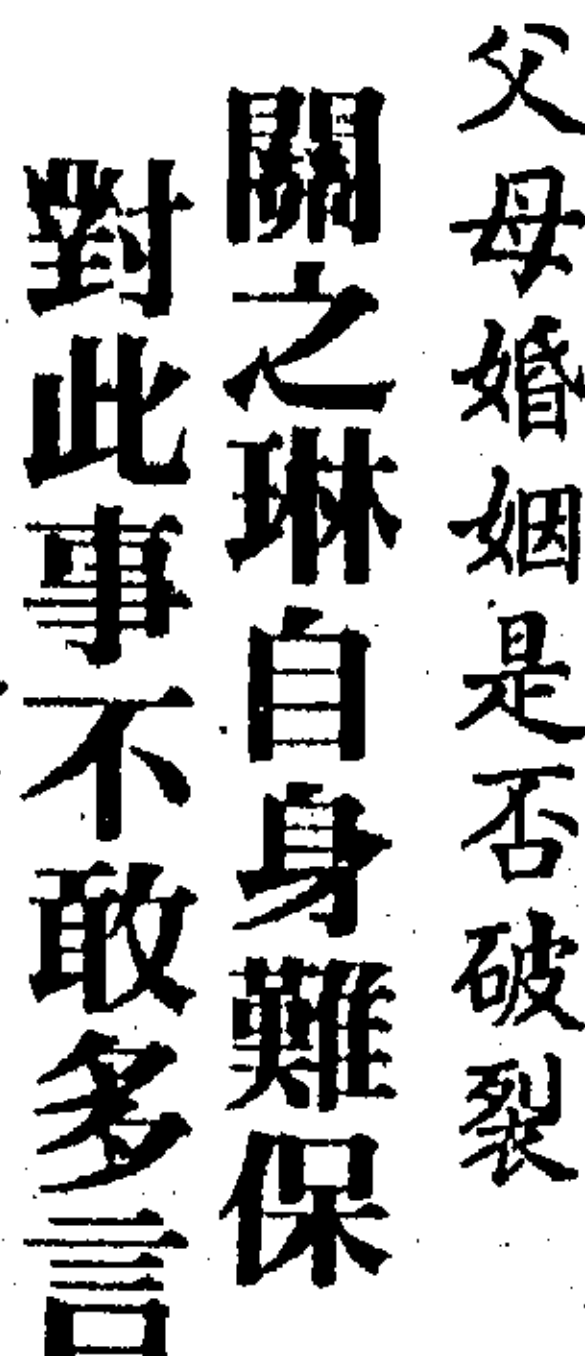 父母婚姻是否破裂
關之琳自身難保
對此事不敢多言